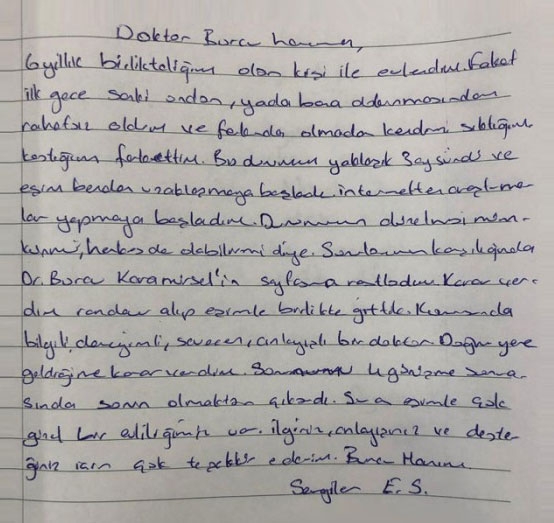 Doktor Burcu hanım,
6 yıllık birlikteliğim olan kişi ile evlendim. Fakat
ilk gece sanki ondan, yada bana dokunmasından
rahatsız oldum ve farkında olmadan kendimi sıktığım
kastığımı farkettim. Bu durumum yaklaşık 3 ay sürdü ve
eşim benden uzaklaşmaya başladı. internetten araştırma-
lar yapmaya başladım. Durumun düzelmesi müm-
künmü, herkesde olabilirmi diye. Sorularımın karşılığında
Dr. Burcu Karamürsel'in sayfasına rastladım. Karar ver-
dim randevu alıp eşimle birlikte gittik. Konusunda
bilgili, deneyimli, sevecen, anlayışlı bir doktor. Doğru yere
geldiğime karar verdim. Sorunum vaginizme sonra-
sında sorun olmaktan çıkardı. Şu a eşimle çok
güzel bir evliliğimiz var. ilginiz, anlayışınız ve deste-
ğiniz için çok teşekkür ederim. Burcu Hanım
Sevgiler E.S.